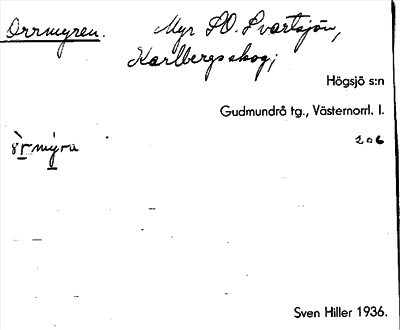 Orrmyren. Myr SO. Svartsjön,
Karlbergsskog;
Högsjö s:n
Gudmundrå tg., Västernorrl. l.
206
Sven Hiller 1936.